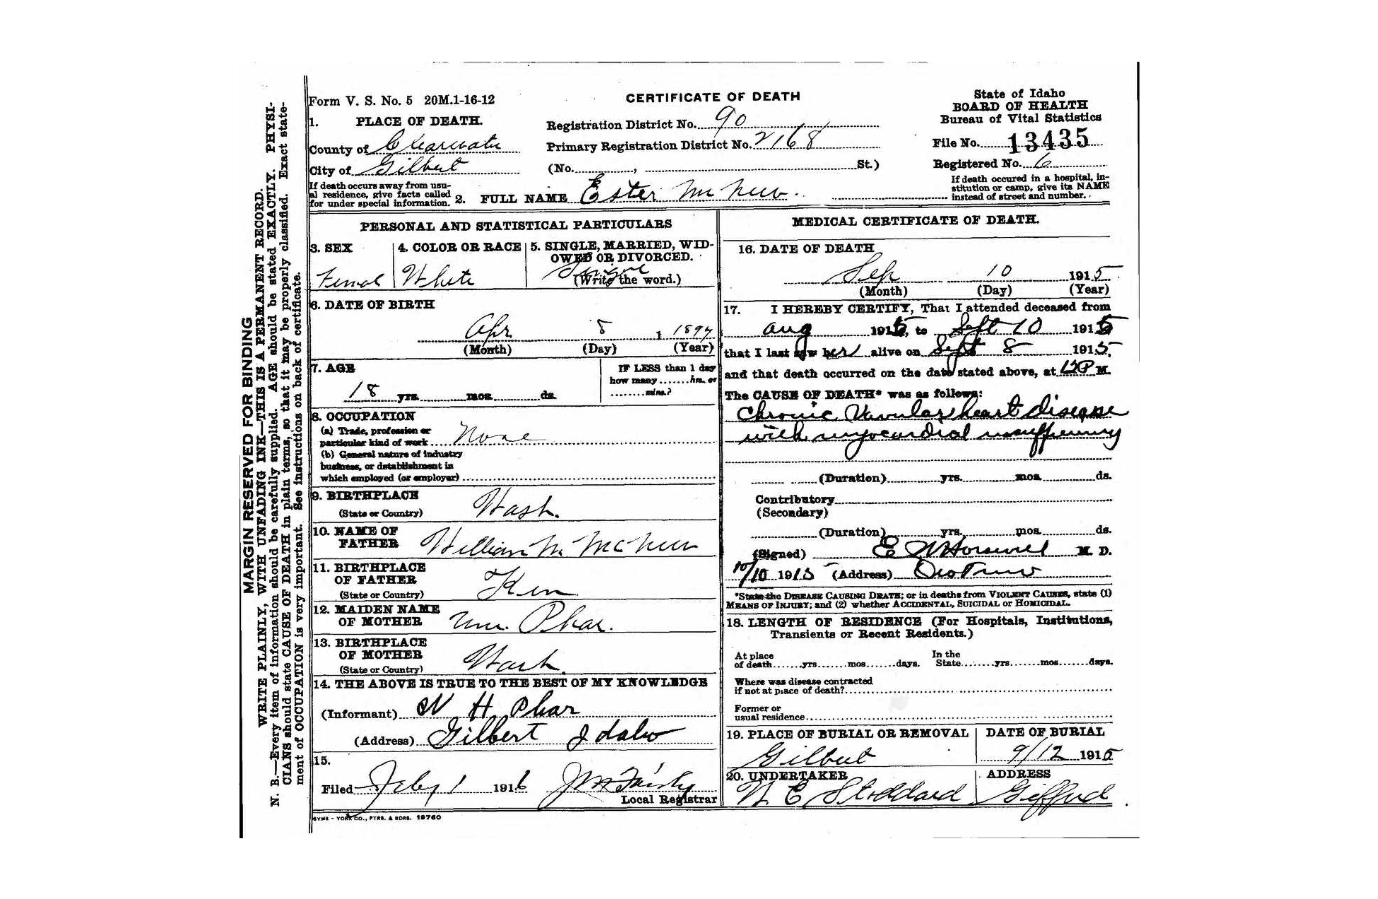 MARGIN RESERVED FOR BINDING
WRITE PLAINLY, WITH UNFADING INK—THIS IS A PERMANENT RECORD.
N. B.—Every item of information should be carefully supplied. AGE should be stated EXACTLY. PHYSI-
CIANS should state CAUSE OF DEATH in plain terms, so that it may be properly classified. Exact state-
ment of OCCUPATION is very important. See instructions on back of certificate.
Form V. S. No. 5 20M.1-16-12
CERTIFICATE OF DEATH
State of Idaho
BOARD OF HEALTH
Bureau of Vital Statistics
File No. 13435
Registered No. 6
If death occured in a hospital, in-
stitution or camp, give its NAME
instead of street and number.
1. PLACE OF DEATH.
County of Clearwater
City of Gilbert
If death occurs away from usu-
al residence, give facts called
for under special information.
Registration District No. 90
Primary Registration District No. 2168
(No. , St.)
2. FULL NAME Ester
PERSONAL AND STATISTICAL PARTICULARS
3. SEX
Femal
4. COLOR OR RACE
White
5. SINGLE, MARRIED, WID-
OWED OR DIVORCED.
(Write the word.)
6. DATE OF BIRTH
Apr 8, 1897
(Month) (Day) (Year)
7. AGE
18 yrs. mos. ds.
IF LESS than 1 day
how many hrs. or
mins.?
8. OCCUPATION
(a) Trade, profession or
particular kind of work None
(b) General nature of industry
business, or establishment in
which employed (or employer)
9. BIRTHPLACE
(State or Country) Wash.
10. NAME OF
FATHER William M
11. BIRTHPLACE
OF FATHER
(State or Country) Ken
12. MAIDEN NAME
OF MOTHER Phar.
13. BIRTHPLACE
OF MOTHER
(State or Country) Wash.
14. THE ABOVE IS TRUE TO THE BEST OF MY KNOWLEDGE
(Informant) W H Phar
(Address) Gilbert Idaho
15.
Filed Feby 1 1916
Local Registrar
MEDICAL CERTIFICATE OF DEATH.
16. DATE OF DEATH
Sep 10 1915
(Month) (Day) (Year)
17. I HEREBY CERTIFY, That I attended deceased from
aug 1915 to Sept 10 1915
that I last saw her alive on Sept 8 1915
and that death occurred on the date stated above, at 12P M.
The CAUSE OF DEATH* was as follows:
Chronic Vavular heart disease
with myocardial
(Duration) yrs. mos. ds.
Contributory
(Secondary)
(Duration) yrs. mos. ds.
(Signed) E W Horswel M. D.
10/10 1915 (Address)
*State the DISEASE CAUSING DEATH; or in deaths from VIOLENT CAUSES, state (1)
MEANS OF INJURY; and (2) whether ACCIDENTAL, SUICIDAL or HOMICIDAL.
18. LENGTH OF RESIDENCE (For Hospitals, Institutions,
Transients or Recent Residents.)
At place
of death yrs. mos. days.
In the
State yrs. mos. days.
Where was disease contracted
if not at place of death?
Former or
usual residence
19. PLACE OF BURIAL OR REMOVAL
Gilbert
DATE OF BURIAL
9/12 1915
20. UNDERTAKER
N E Stoddard
ADDRESS
Gifford
SYMS - YORK CO., PTRS. & BDRS. 18760